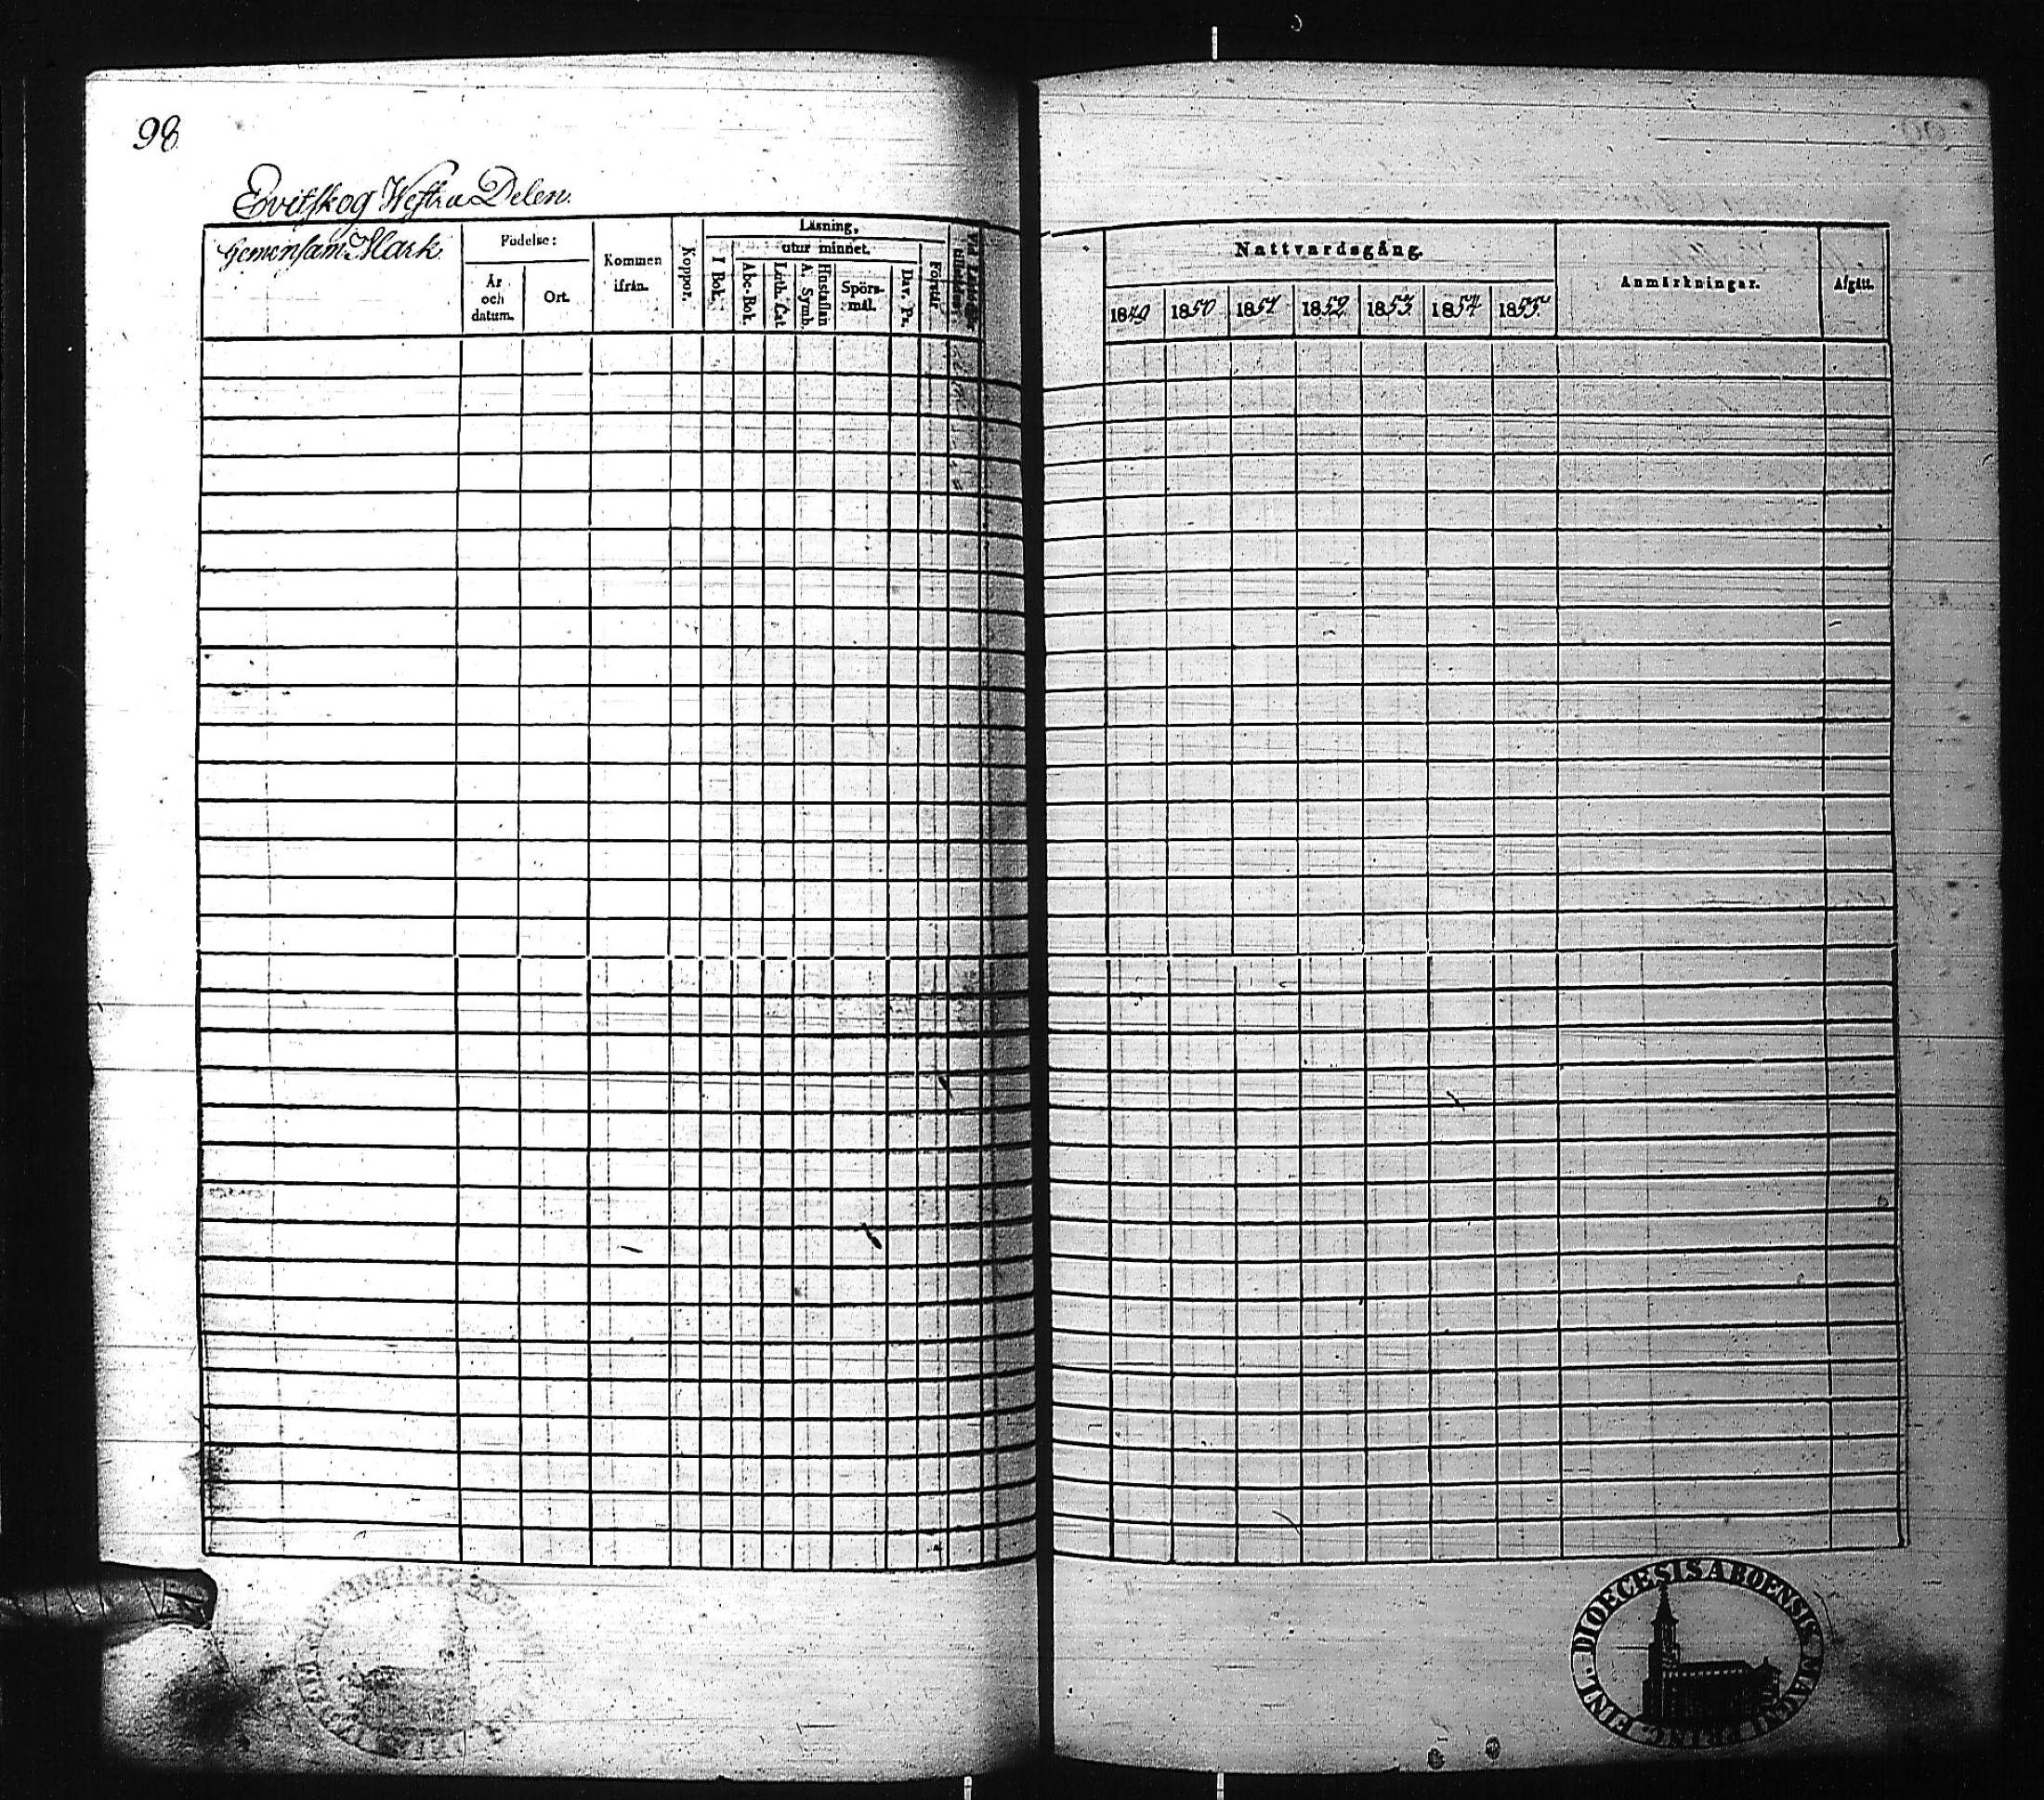 98
Evitskog Westra Delen.
Gemensam Mark
Födelse:
År och datum.
Ort.
Kommen ifrån.
Koppor.
Läsning,
utur minnet.
I Bok.
Abc-Bok.
Luth. Cat.
Hustaflan A. Symb.
Spörsmål.
Dav. Ps.
Förstår
Nattvardsgång.
1849 1850 1851 1852 1853 1854 1855
Anmärkningar.
Afgått.
DIOECESIS ABOENSIS MAGNI PRINC. FINL.